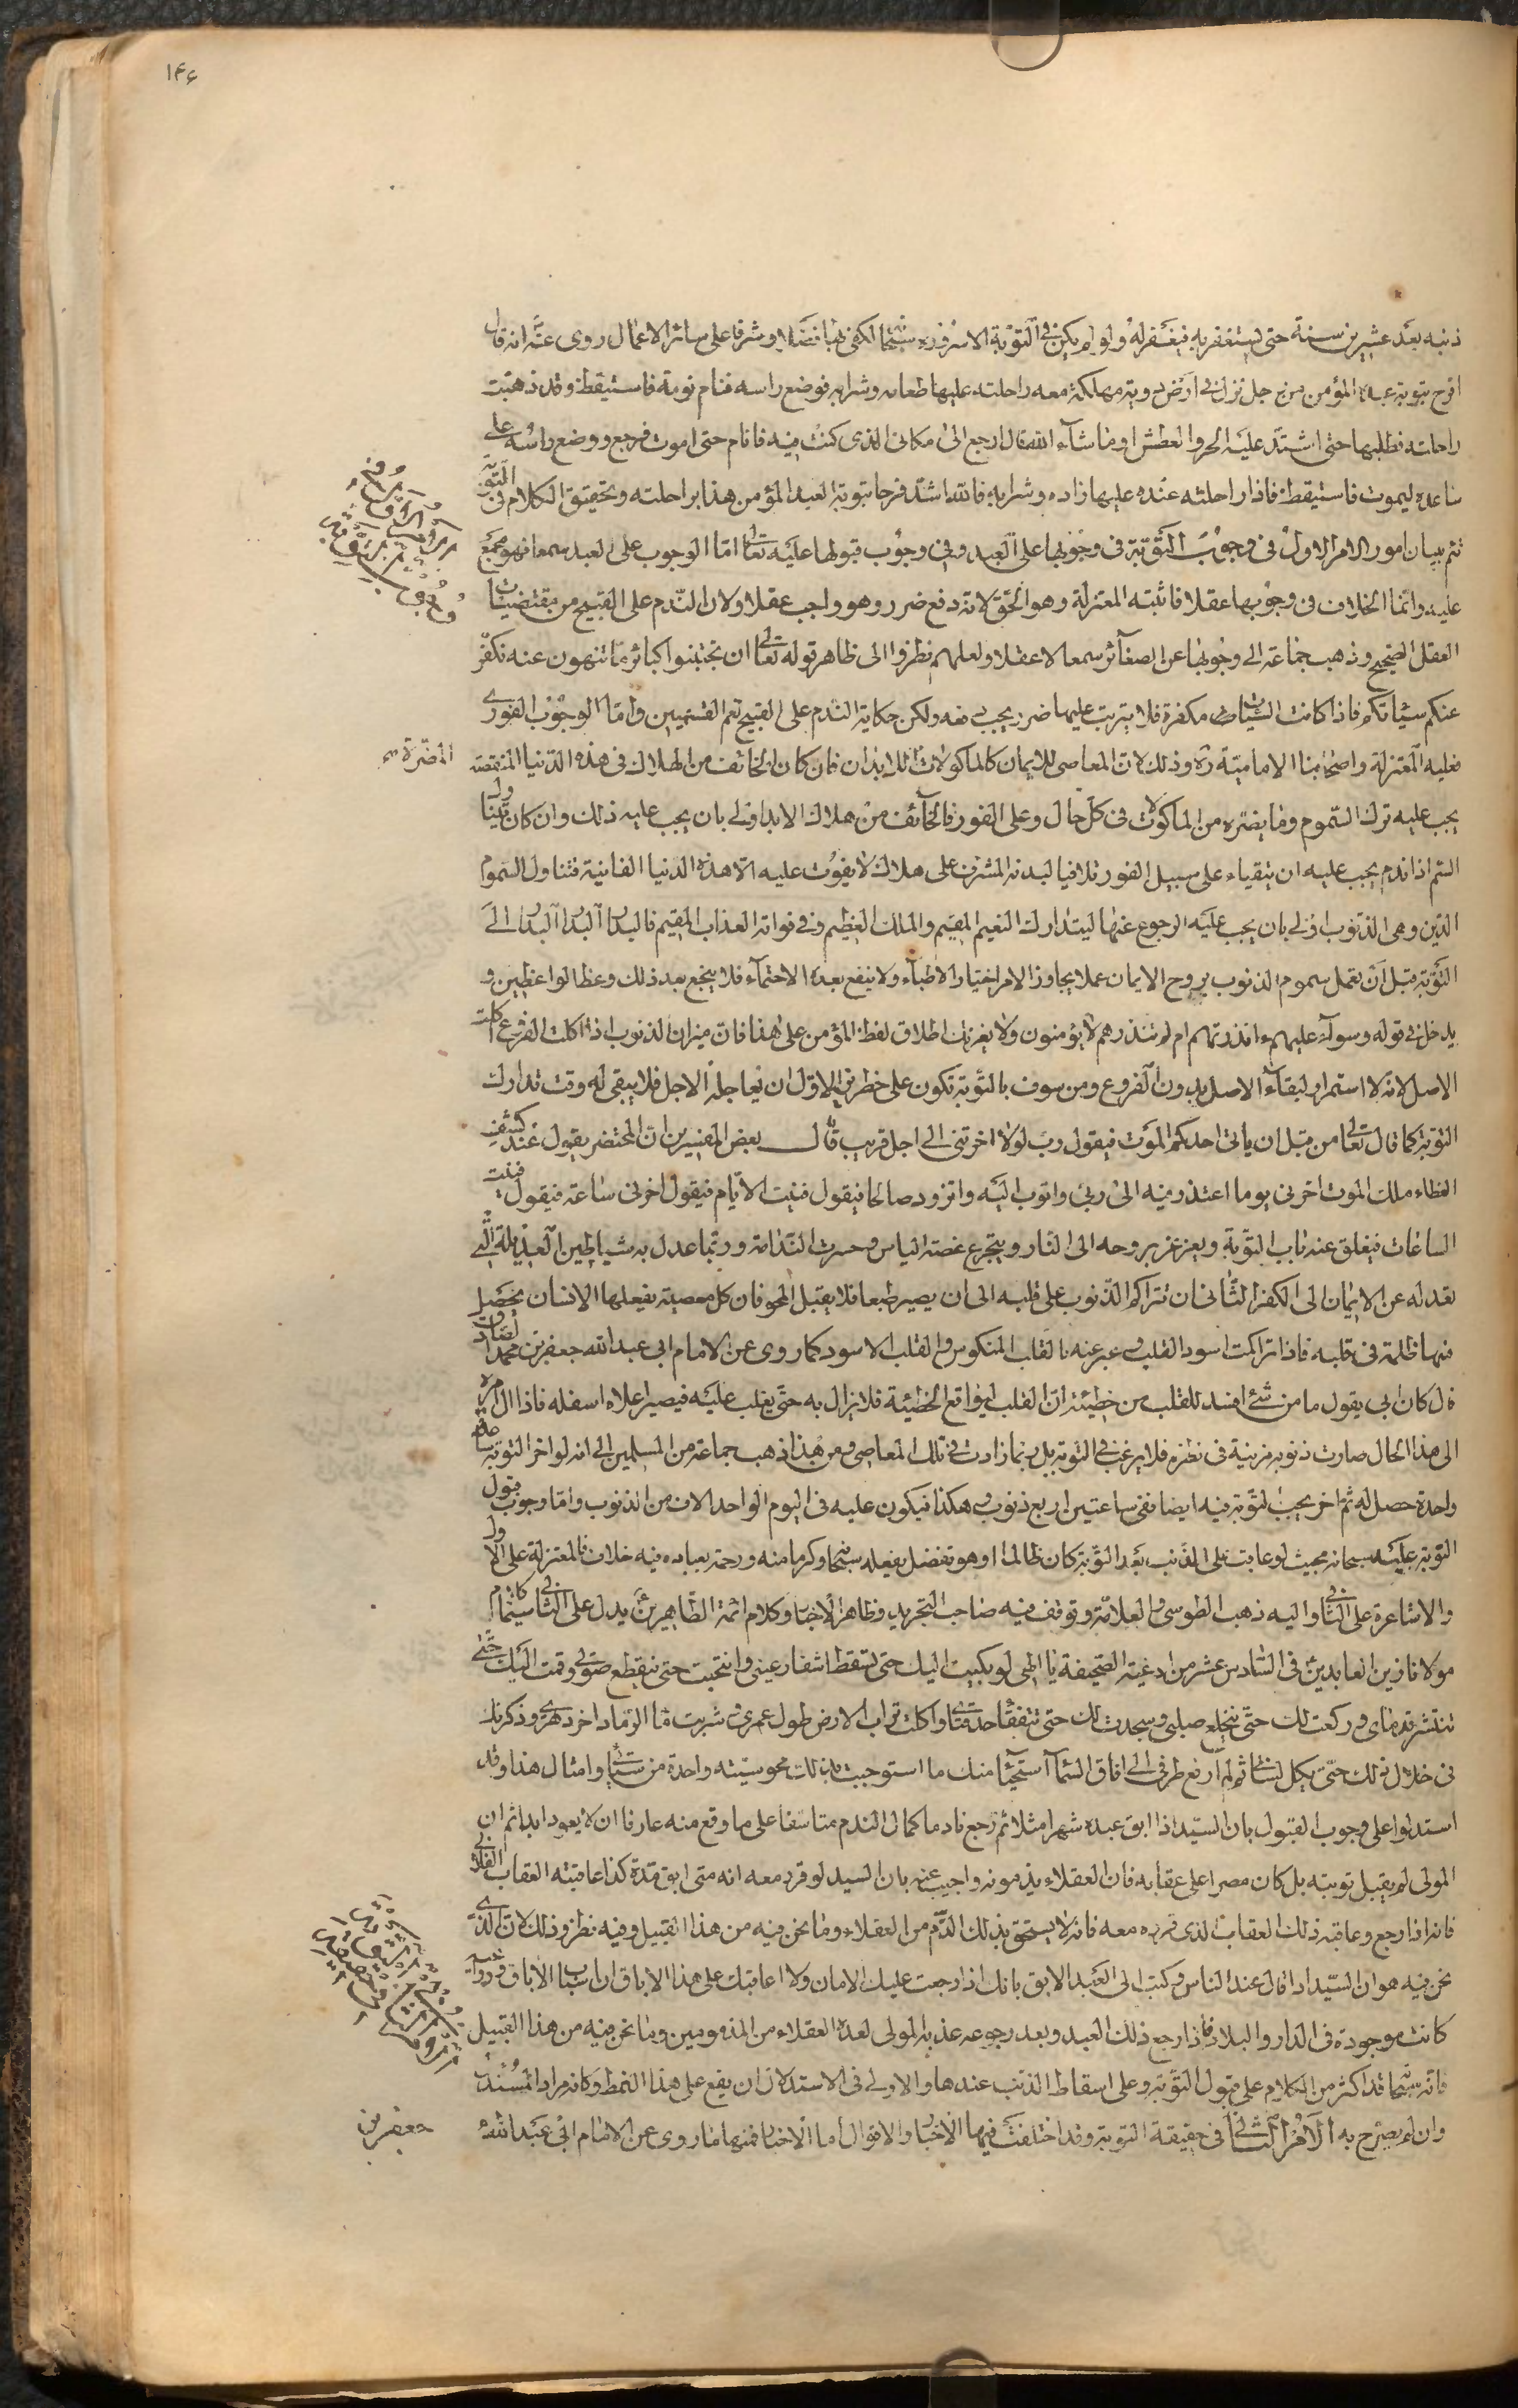 ١٤٤
ذنبه بعد عشرين سنة حتى يستغفر به فيغفر له ولو لم يكن في التوبة الا سروره سبحانه لكفى بها فضلا وشرفا على سائر الاعمال روى عنه انه قال
افرح بتوبة عبده المؤمن من رجل نزل في ارض دوية مهلكة معه راحلته عليها طعامه وشرابه فوضع راسه فنام نومة فاستيقظ وقد ذهبت
راحلته فطلبها حتى اشتد عليه الحر والعطش او ما شاء الله قال ارجع الى مكانى الذى كنت فيه فانام حتى اموت فرجع ووضع راسه على
ساعده ليموت فاستيقظ فاذا راحلته عنده عليها زاده وشرابه فالله اشد فرحا بتوبة العبد المؤمن من هذا براحلته وتحقيق الكلام في التوبة
تتم ببيان امور الامر الاول في وجوب التوبة في وجوبها على العبد وفي وجوب قبولها عليه تعالى اما الوجوب على العبد سمعا فهو مجمع
عليه وانما الخلاف في وجوبها عقلا فاثبته المعتزلة وهو الحق لانه دفع ضرر وهو واجب عقلا ولان الندم على القبيح من مقتضيات
العقل الصحيح وذهب جماعة الى وجوبها عن الصغائر سمعا لا عقلا ولعلهم نظروا الى ظاهر قوله تعالى ان تجتنبوا كبائر ما تنهون عنه نكفر
عنكم سيئاتكم فاذا كانت السيئات مكفرة فلا يترتب عليها ضرر يجب دفعه ولكن حكاية الندم على القبيح تعم القسمين واما الوجوب الفورى
فعليه المعتزلة واصحابنا الامامية ره وذلك لان المعاصى للايمان كالماكولات للابدان فان كان الخائف من الهلاك في هذه الدنيا المنقصة
المضرة
يجب عليه ترك السموم وما يضره من الماكولات في كل حال وعلى الفور فالخائف من هلاك الابد اولى بان يجب عليه ذلك وان كان متناول
السم اذا ندم يجب عليه ان يتقياء على سبيل الفور تلافيا لبدنه المشرف على هلاك لا يفوت عليه الا هذه الدنيا الفانية فتناول السموم
الدين وهى الذنوب اولى بان يجب عليه الرجوع عنها ليتدارك النعيم المقيم والملك العظيم وفي فواته العذاب المقيم فالبدار البدار البدار الى
التوبة قبل ان تعمل سموم الذنوب بروح الايمان عملا يجاوز الامر اختيار الاطباء ولا ينفع بعده الاحتماء فلا ينجع بعد ذلك وعظ الواعظين و
يدخل في قوله وسواء عليهم ءانذرتهم ام لم تنذرهم لا يؤمنون ولا يغرنك اطلاق لفظ المؤمن على هذا فان ميزان الذنوب اذا اكلت الفروع اكلت
الاصل لانه لا استمرار لبقاء الاصل بدون الفروع ومن سوف بالتوبة تكون على خطرين الاول ان يعاجله الاجل فلا يبقى له وقت تدارك
التوبة كما قال تعالى من قبل ان ياتى احدكم الموت فيقول رب لولا اخرتنى الى اجل قريب قال بعض المفسرين ان المحتضر يقول عند كشف
الغطاء ملك الموت اخرنى يوما اعتذر فيه الى ربى واتوب اليه واتزود صالحا فيقول فنيت الايام فيقول اخرنى ساعة فيقول فنيت
الساعات فيغلق عنه باب التوبة ويغرغر بروحه الى النار ويتجرع غصة الياس وحسرت الندامة وربما عدل به شياطين العديلة التى
تعدله عن الايمان الى الكفر الثانى ان تتراكم الذنوب على قلبه الى ان يصير طبعا فلا يقبل المحو فان كل معصية يفعلها الانسان يحصل
منها ظلمة في قلبه فاذا تراكمت اسود القلب وعبر عنه بالقلب المنكوس والقلب الاسود كما روى عن الامام ابى عبد الله جعفر بن محمد الصادق
قال كان ابى يقول ما من شئ افسد للقلب من خطيئة ان القلب ليواقع الخطيئة فلا يزال به حتى يغلب عليه فيصير اعلاه اسفله فاذا ال امره
الى هذا الحال صارت ذنوبه مزينة في نظره فلا يرغب في التوبة بل ربما زادت في تلك المعاصى ومن هذا ذهب جماعة من المسلمين الى انه لو اخر التوبة ساعة
واحدة حصل له ثم اخر يجب التوبة فيه ايضا ففى ساعتين اربع ذنوب وهكذا فيكون عليه في اليوم الواحد الاف من الذنوب واما وجوب قبول
التوبة عليه سبحانه بحيث لو عاقب على الذنب بعد التوبة كان ظالما او هو تفضل يفعله سبحانه وكرما منه ورحمة بعباده فيه خلاف فالمعتزلة على الاول
والاشاعرة على الثانى واليه ذهب الطوسى والعلامة وتوقف فيه صاحب التجريد وظاهر الاخبار وكلام ائمة الطاهرين يدل على الثانى سيما كلام
مولانا زين العابدين في السادس عشر من ادعية الصحيفة يا الهى لو بكيت اليك حتى تسقط اشفار عينى وانتحبت حتى ينقطع صوتى وقمت اليك حتى
تنتشر قدماى وركعت لك حتى ينخلع صلبى وسجدت لك حتى تتفقأ حدقتاى واكلت تراب الارض طول عمرى وشربت ماء الرماد اخر دهرى وذكرتك
في خلال ذلك حتى يكل لسانى ثم لم ارفع طرفى الى افاق السماء استحياء منك ما استوجبت بذلك محو سيئة واحدة من سيئاتى وامثال هذا وقد
استدلوا على وجوب القبول بان السيد اذا ابق عبده شهرا مثلا ثم رجع نادما كمال الندم متاسفا على ما وقع منه عازما ان لا يعود ابدا ثم ان
المولى لم يقبل توبته بل كان مصرا على عقابه فان العقلاء يذمونه واجيب عنه بان السيد لو قرر معه انه متى ابق مدة كذا عاقبته العقاب الفلانى
فانه اذا رجع وعاقبه ذلك العقاب الذى قرره معه فانه لا يستحق بذلك الذم من العقلاء وما نحن فيه من هذا القبيل وفيه نظر وذلك لان الذى
نحن فيه هو ان السيد اذا قال عند الناس وكتب الى العبد الابق بانك اذا رجعت عليك الامان ولا اعاقبك على هذا الاباق
كانت موجودة في الدار والبلاد فاذا رجع ذلك العبد وبعد رجوعه عذبه المولى لعده العقلاء من المذمومين وما نحن فيه من هذا القبيل
فانه سبحانه قد اكثر من الكلام على قبول التوبة وعلى اسقاط الذنب عندها والاولى في الاستدلال ان يقع على هذا النمط وكانه مراد المستدل
وان لم يصرح به الامر الثانى في حقيقة التوبة وقد اختلفت فيها الاخبار والاقوال اما الاخبار فمنها ما روى عن الامام ابى عبد الله
جعفر بن